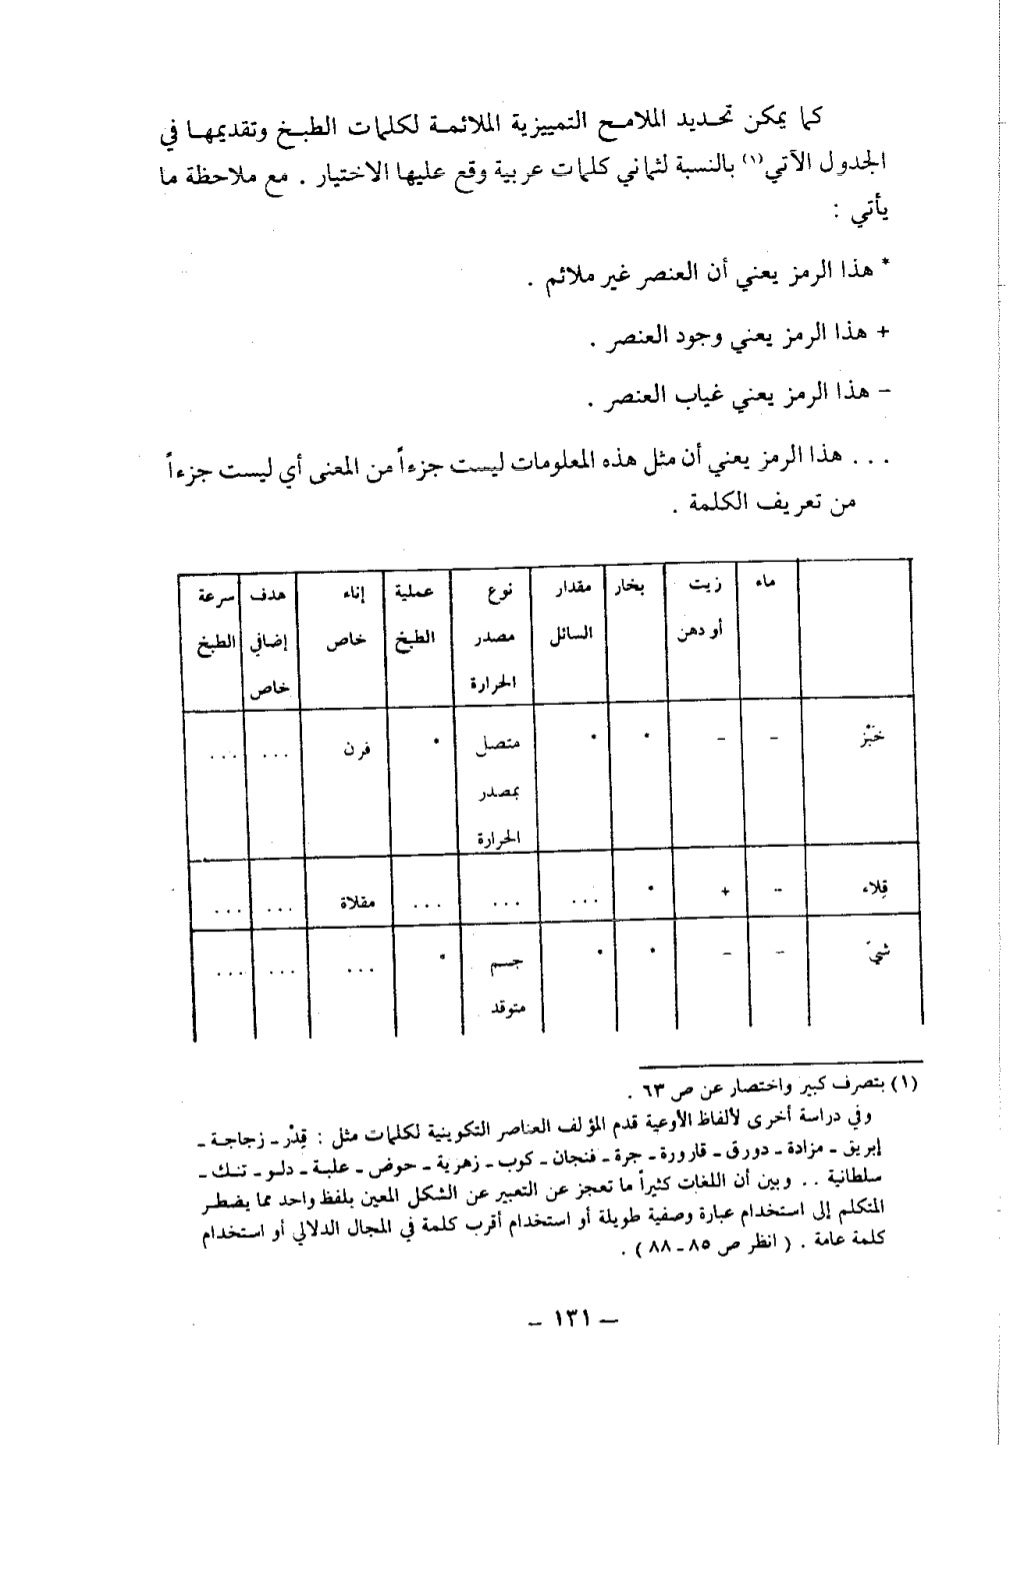 كما يمكن تحديد الملامح التمييزية الملائمة لكلمات الطبخ وتقديمها في
الجدول الآتي(١) بالنسبة لثماني كلمات عربية وقع عليها الاختيار . مع ملاحظة ما
يأتي :
* هذا الرمز يعني أن العنصر غير ملائم .
+ هذا الرمز يعني وجود العنصر .
- هذا الرمز يعني غياب العنصر .
... هذا الرمز يعني أن مثل هذه المعلومات ليست جزءاً من المعنى أي ليست جزءاً
من تعريف الكلمة .
ماء زيت بخار مقدار نوع عملية إناء هدف سرعة
أو دهن السائل مصدر الطبخ خاص إضافي الطبخ
الحرارة خاص
خَبْز - - * * متصل * فرن ... ...
بمصدر
الحرارة
قِلاء - + * ... ... ... مقلاة ... ...
شيّ - - * * جسم * ... ... ...
متوقد
(١) بتصرف كبير واختصار عن ص ٦٣ .
وفي دراسة أخرى لألفاظ الأوعية قدم المؤلف العناصر التكوينية لكلمات مثل : قِدْر ـ زجاجة ـ
إبريق ـ مزادة ـ دورق ـ قارورة ـ جرة ـ فنجان ـ كوب ـ زهرية ـ حوض ـ علبة ـ دلو ـ تنك ـ
سلطانية .. وبين أن اللغات كثيراً ما تعجز عن التعبير عن الشكل المعين بلفظ واحد مما يضطر
المتكلم إلى استخدام عبارة وصفية طويلة أو استخدام أقرب كلمة في المجال الدلالي أو استخدام
كلمة عامة . ( انظر ص ٨٥ ـ ٨٨ ) .
– ١٣١ –